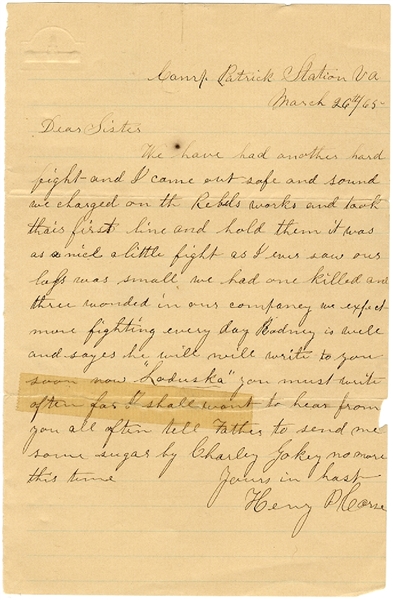 Camp Patrick Station VA
March 26th/65-
Dear Sister
We have had another hard
fight and I came out safe and sound
we charged on th Rebels works and took
thair first line and hold them it was
as nice a little fight as I ever saw our
loss was small, we had one killed and
three wonded in our company we expect
more fighting every day Rodney is well
and sayes he will will write to you
soon now "Loduska" you must write
often for I shall want to hear from
you all often tell Father to send me
some sugar by Charley Gokey no more
this time Yours in hast
Henry P Corse